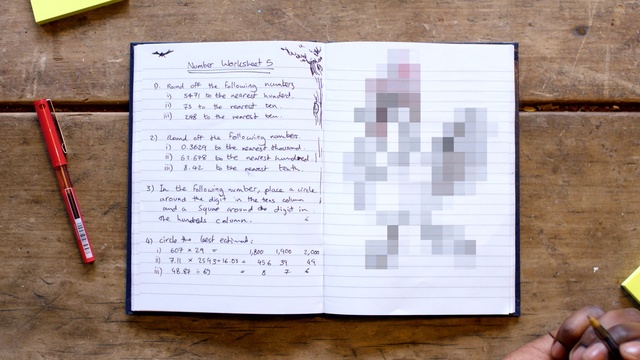 Number Worksheet 5
1). Round off the following numbers
i) 5471 to the nearest hundred.
ii) 75 to the nearest ten.
iii) 248 to the nearest ten.
2) Round off the following numbers.
i) 0.3629 to the nearest thousand.
ii) 62.678 to the nearest hundred.
iii) 8.42 to the nearest tenth.
3) In the following number, place a circle
around the digit in the tens column
and a Square around the digit in
the hundreds column.
4) circle the best estimate:
i) 607 × 29 = 1,800 1,900 2,000
ii) 7.11 × 25.43 ÷ 16.03 = 456 39 49
iii) 48.87 ÷ 69 = 8 7 6